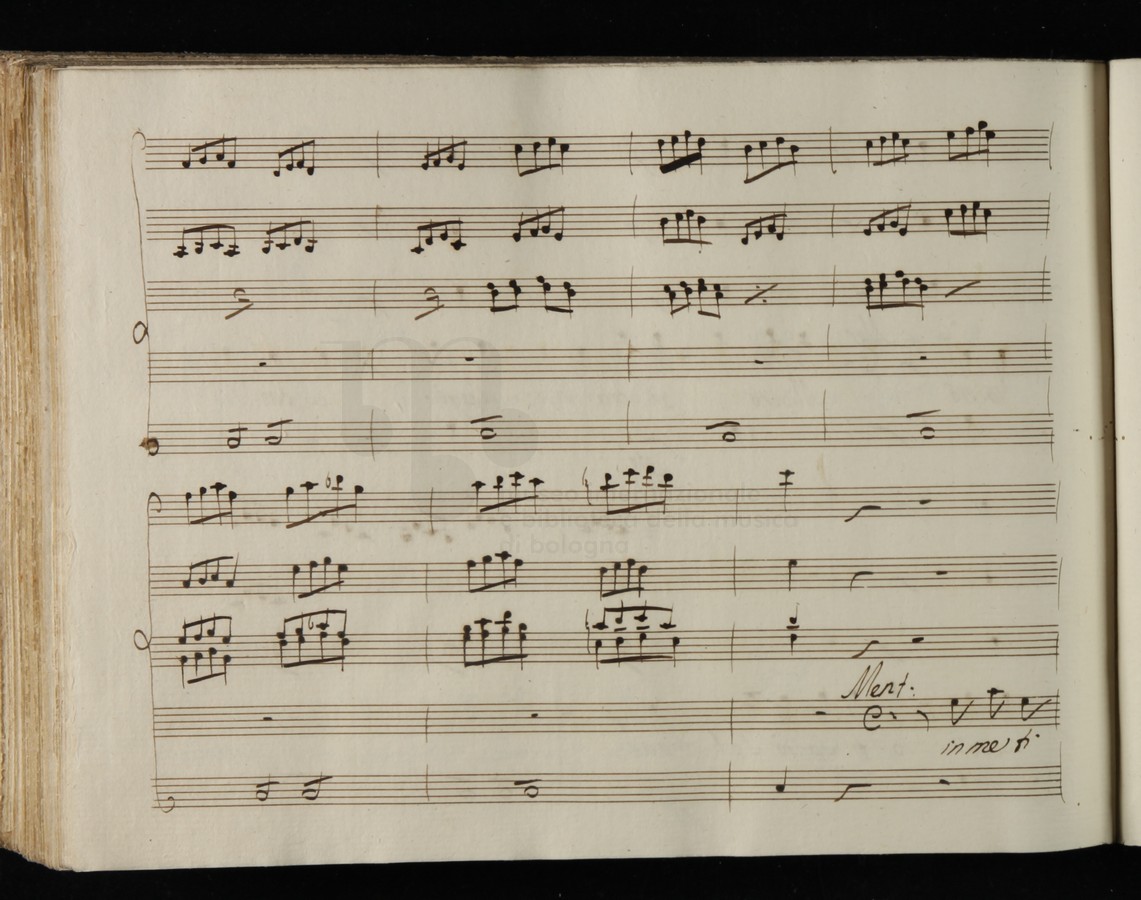 museo internazionale
e biblioteca della musica
di bologna
Ment:
in me ti